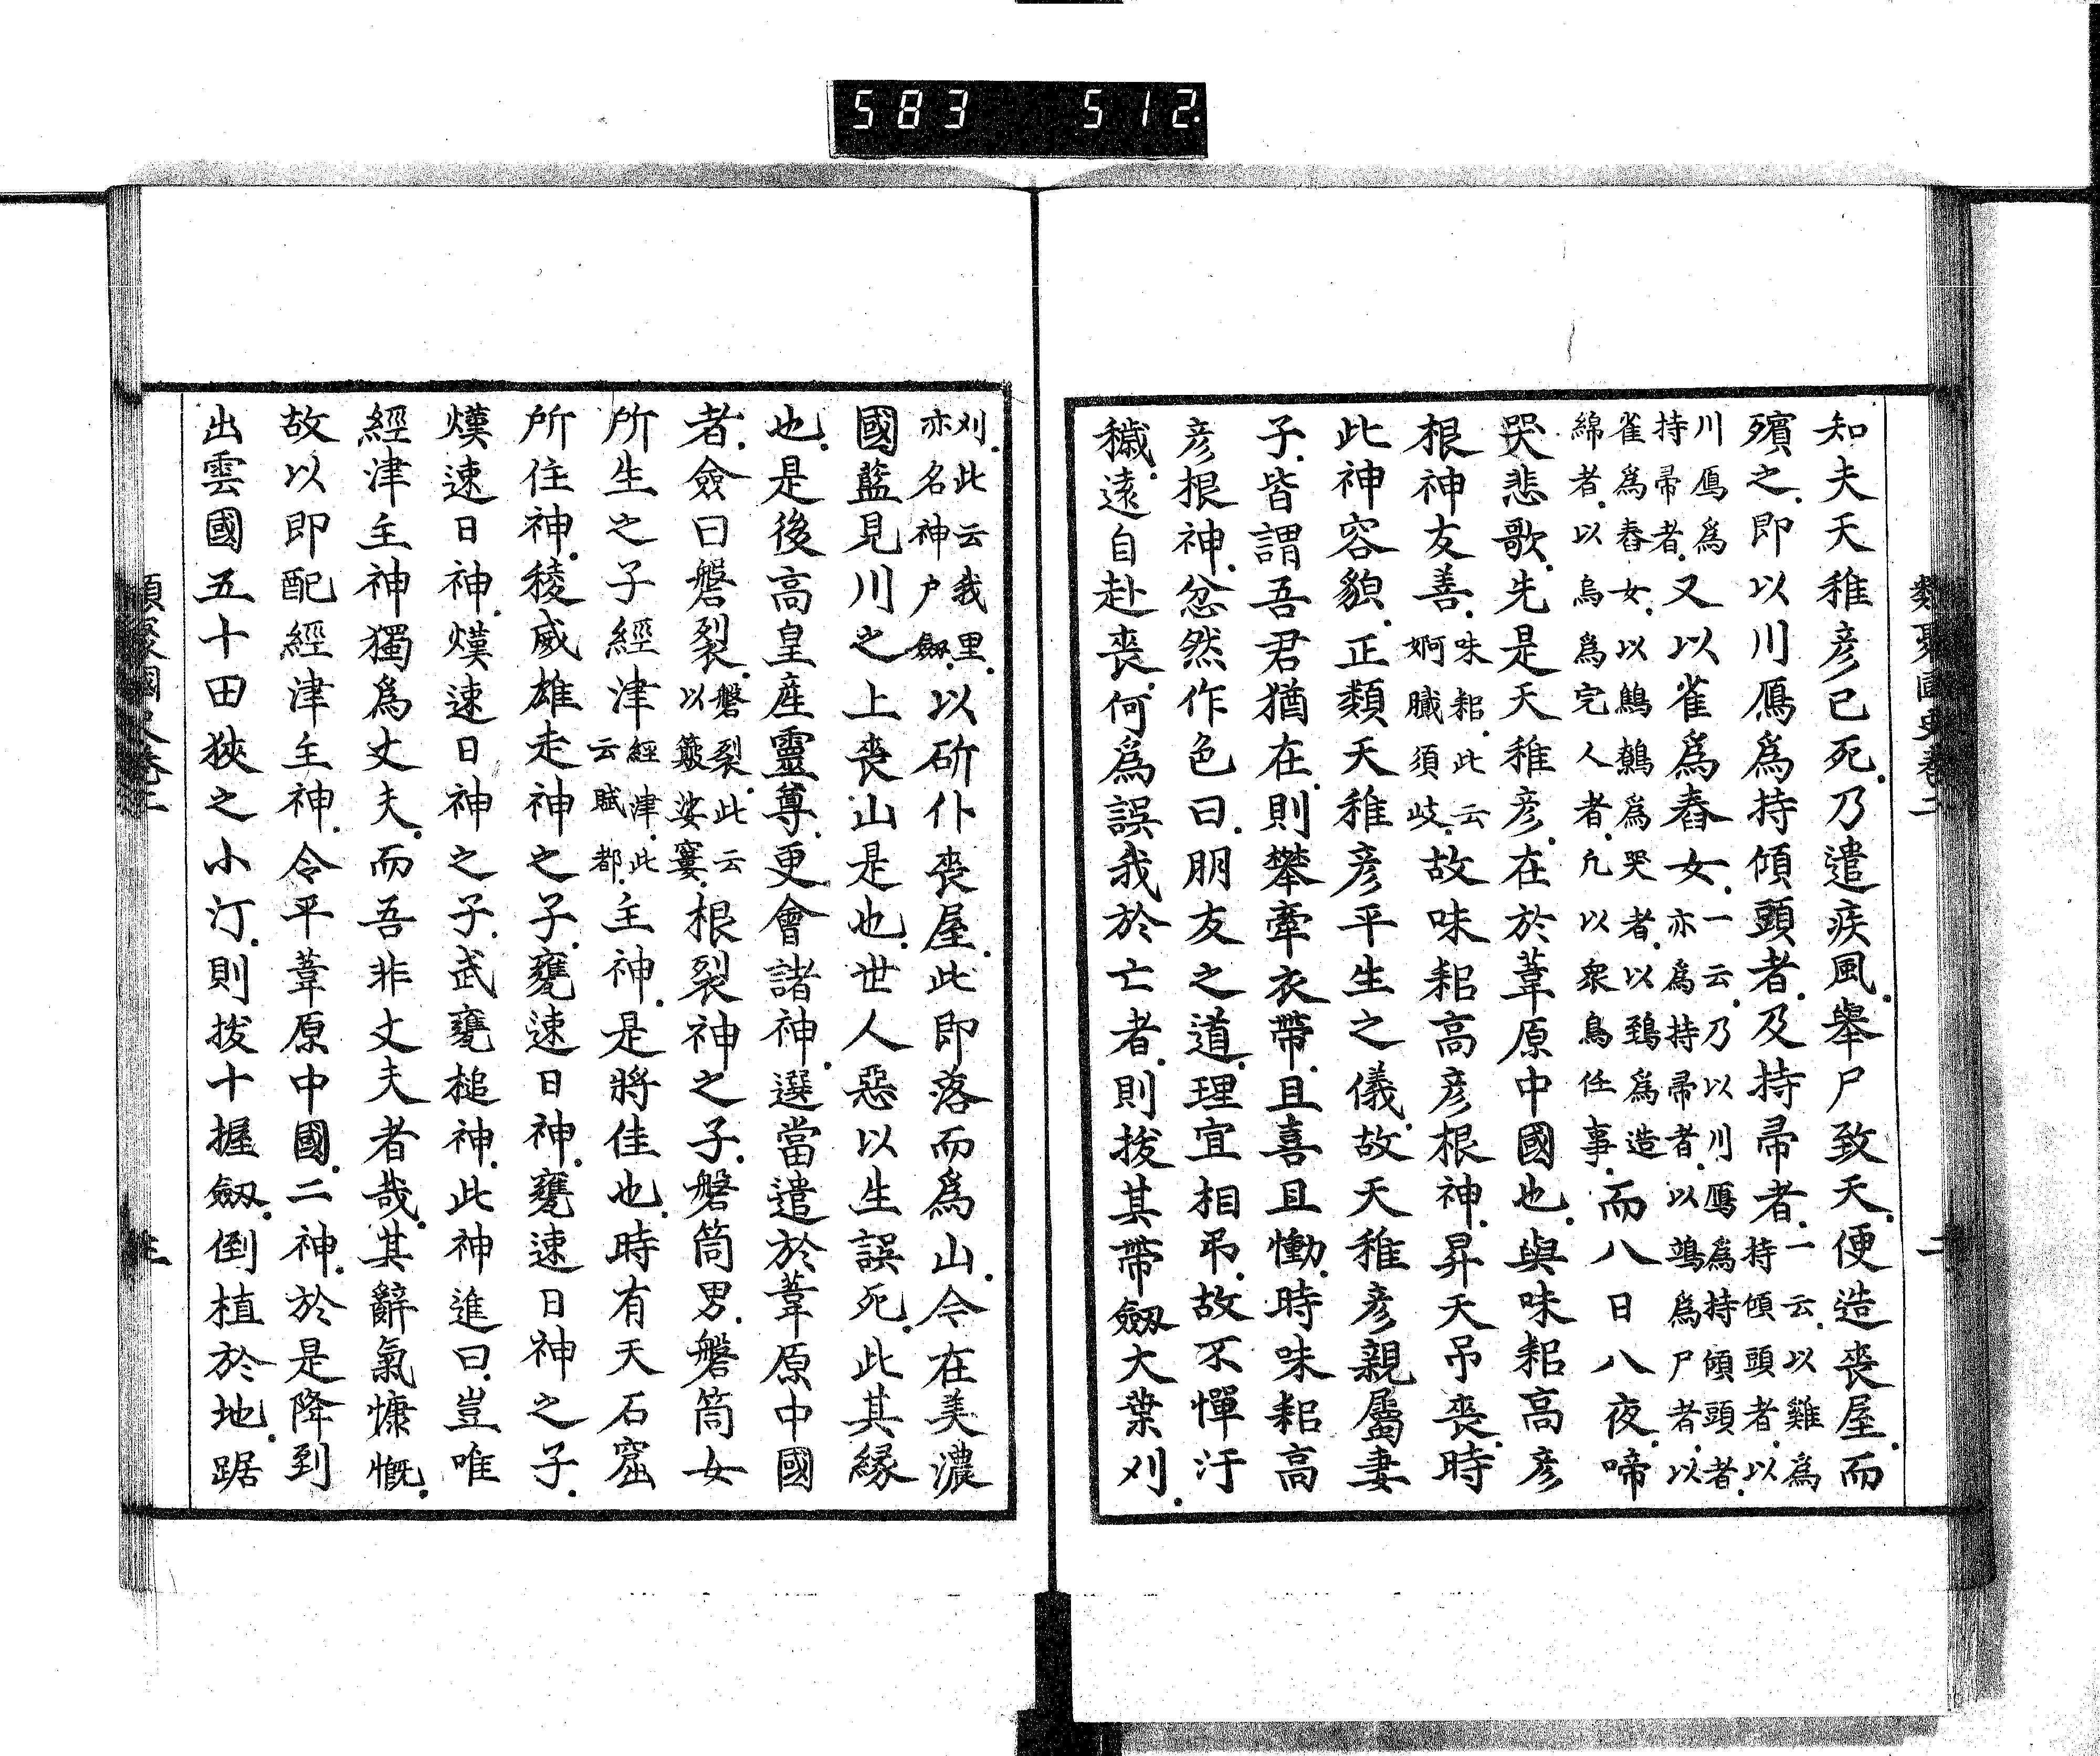 583 512
類聚國史卷二 二
知夫天稚彦已死.乃遣疾風.擧尸致天.便造喪屋.而
殯之.即以川鴈爲持傾頭者.及持帚者.一云.以雞爲持傾頭者.以
川鴈爲持帚者.又以雀爲舂女.一云.乃以川鴈爲持傾頭者.亦爲持帚者.以鴗爲尸者.以
雀爲舂女.以鷦鷯爲哭者.以鵄爲造綿者.以烏爲宍人者.凡以衆鳥任事.而八日八夜.啼
哭悲歌.先是天稚彦.在於葦原中國也.與味耜高彦
根神友善.味耜.此云婀膩須岐.故味耜高彦根神.昇天吊喪.時
此神容貌.正類天稚彦平生之儀.故天稚彦親屬妻
子.皆謂吾君猶在.則攀牽衣帶.且喜且慟.時味耜高
彦根神.忿然作色曰.朋友之道.理宜相弔.故不憚汙
穢.遠自赴喪.何爲誤我於亡者.則拔其帶劔大葉刈.
刈.此云我里.亦名神戸劔.以斫仆喪屋.此即落而爲山.今在美濃
國藍見川之上喪山是也.世人惡以生誤死.此其緣
也.是後高皇産靈尊.更會諸神.選當遣於葦原中國
者.僉曰磐裂.磐裂.此云以簸娑窶.根裂神之子.磐筒男.磐筒女
所生之子經津經津.此云賦都.主神.是將佳也.時有天石窟
所住神.稜威雄走神之子.甕速日神.甕速日神之子.
熯速日神.熯速日神之子.武甕槌神.此神進曰.豈唯
經津主神獨爲丈夫.而吾非丈夫者哉.其辭氣慷慨.
故以即配經津主神.令平葦原中國.二神.於是降到
出雲國五十田狹之小汀.則拔十握劔.倒植於地.踞